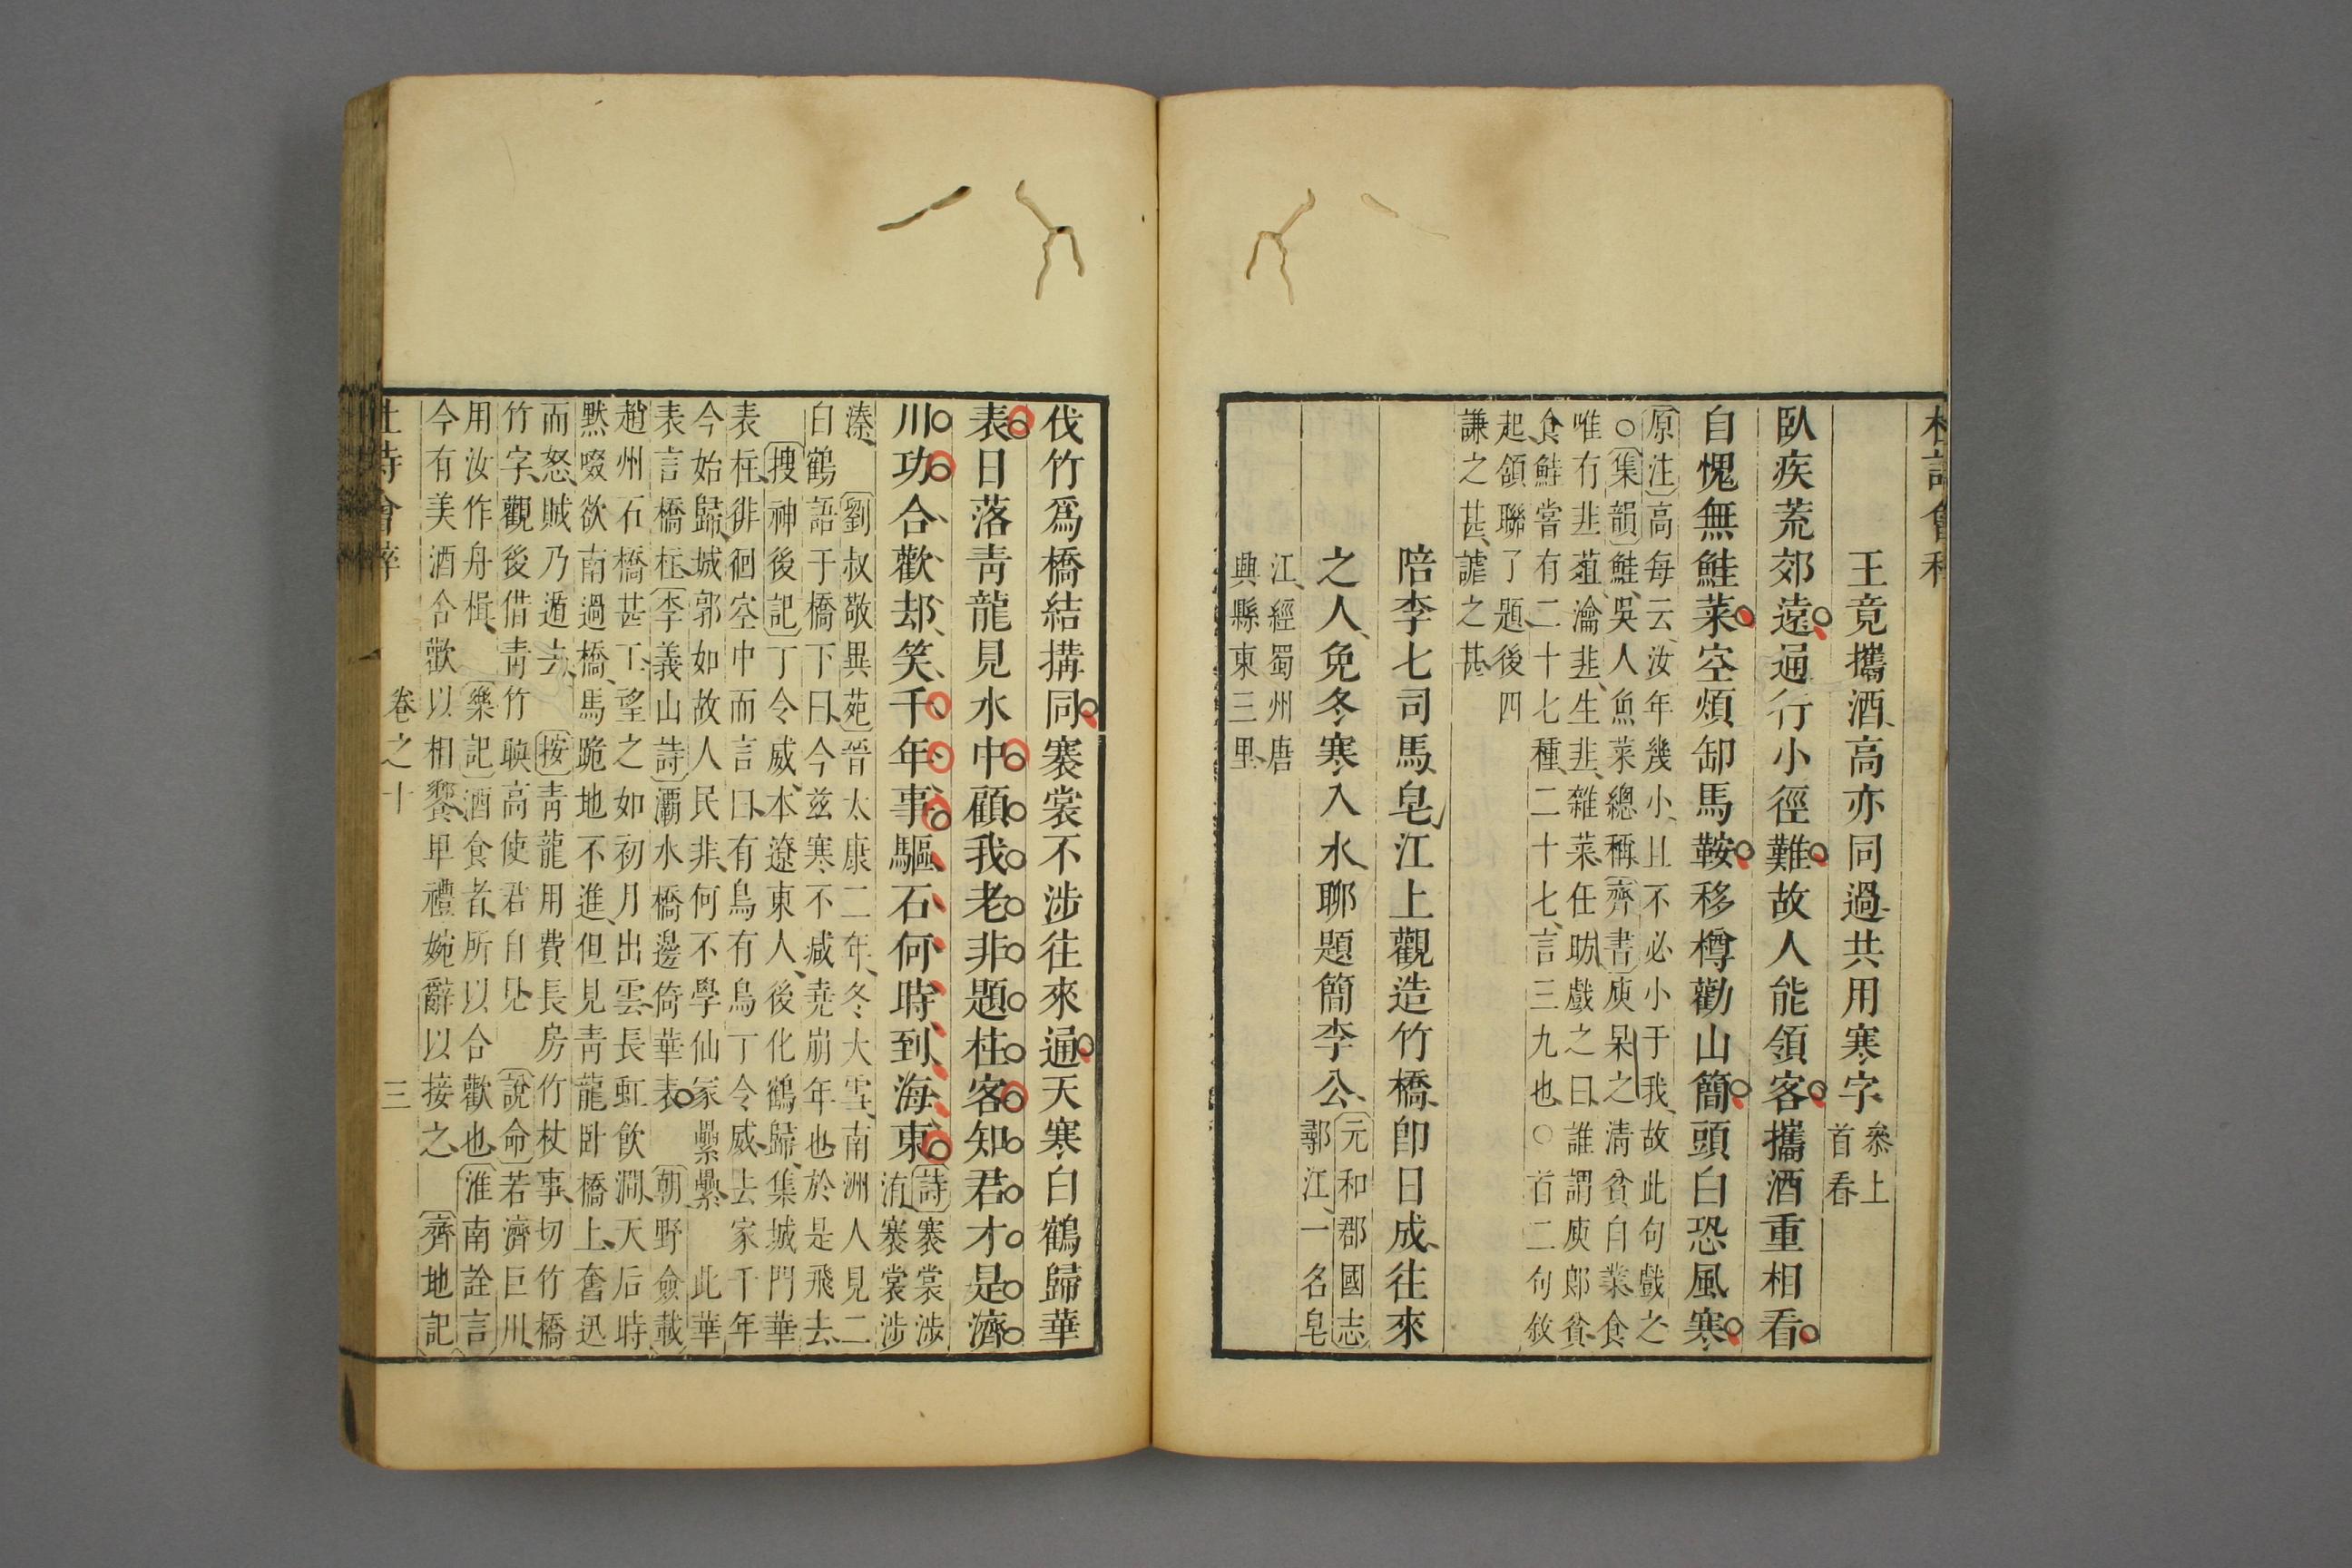 王竟攜酒高亦同過共用寒字叅上
首看
臥疾荒郊遠通行小徑難故人能領客攜酒重相看
自愧無鮭菜空煩卸馬鞍移樽勸山簡頭白恐風寒
原注高每云汝年幾小且不必小于我故此句戲之
○集韻鮭吳人魚菜總稱齊書庾杲之清貧自業食
唯有韭葅瀹韭生韭雜菜任昉戲之曰誰謂庾郎貧
食鮭嘗有二十七種二十七言三九也○首二句敘
起領聯了題後四
謙之甚謔之甚
陪李七司馬皂江上觀造竹橋卽日成往來
之人免冬寒入水聊題簡李公元和郡國志
鄩江一名皂
江經蜀州唐
興縣東三里
伐竹爲橋結搆同褰裳不涉往來通天寒白鶴歸華
表日落靑龍見水中顧我老非題柱客知君才是濟
川功合歡却笑千年事驅石何時到海東詩褰裳涉
洧褰裳涉
溱劉叔敬異苑晉太康二年冬大雪南洲人見二
白鶴語于橋下曰今茲寒不減堯崩年也於是飛去
搜神後記丁令威本遼東人後化鶴歸集城門華
表柱徘徊空中而言曰有鳥有鳥丁令威去家千年
今始歸城郭如故人民非何不學仙冢纍纍此華
表言橋柱李義山詩灞水橋邊倚華表朝野僉載
趙州石橋甚工望之如初月出雲長虹飮澗天后時
黙啜欲南過橋馬跪地不進但見靑龍臥橋上奮迅
而怒賊乃遁去按靑龍用費長房竹杖事切竹橋
竹字觀後借靑竹聧高使君自見說命若濟巨川
用汝作舟楫樂記酒食者所以合歡也淮南詮言
今有美酒合歡以相饗卑禮婉辭以接之齊地記
卷之十
三